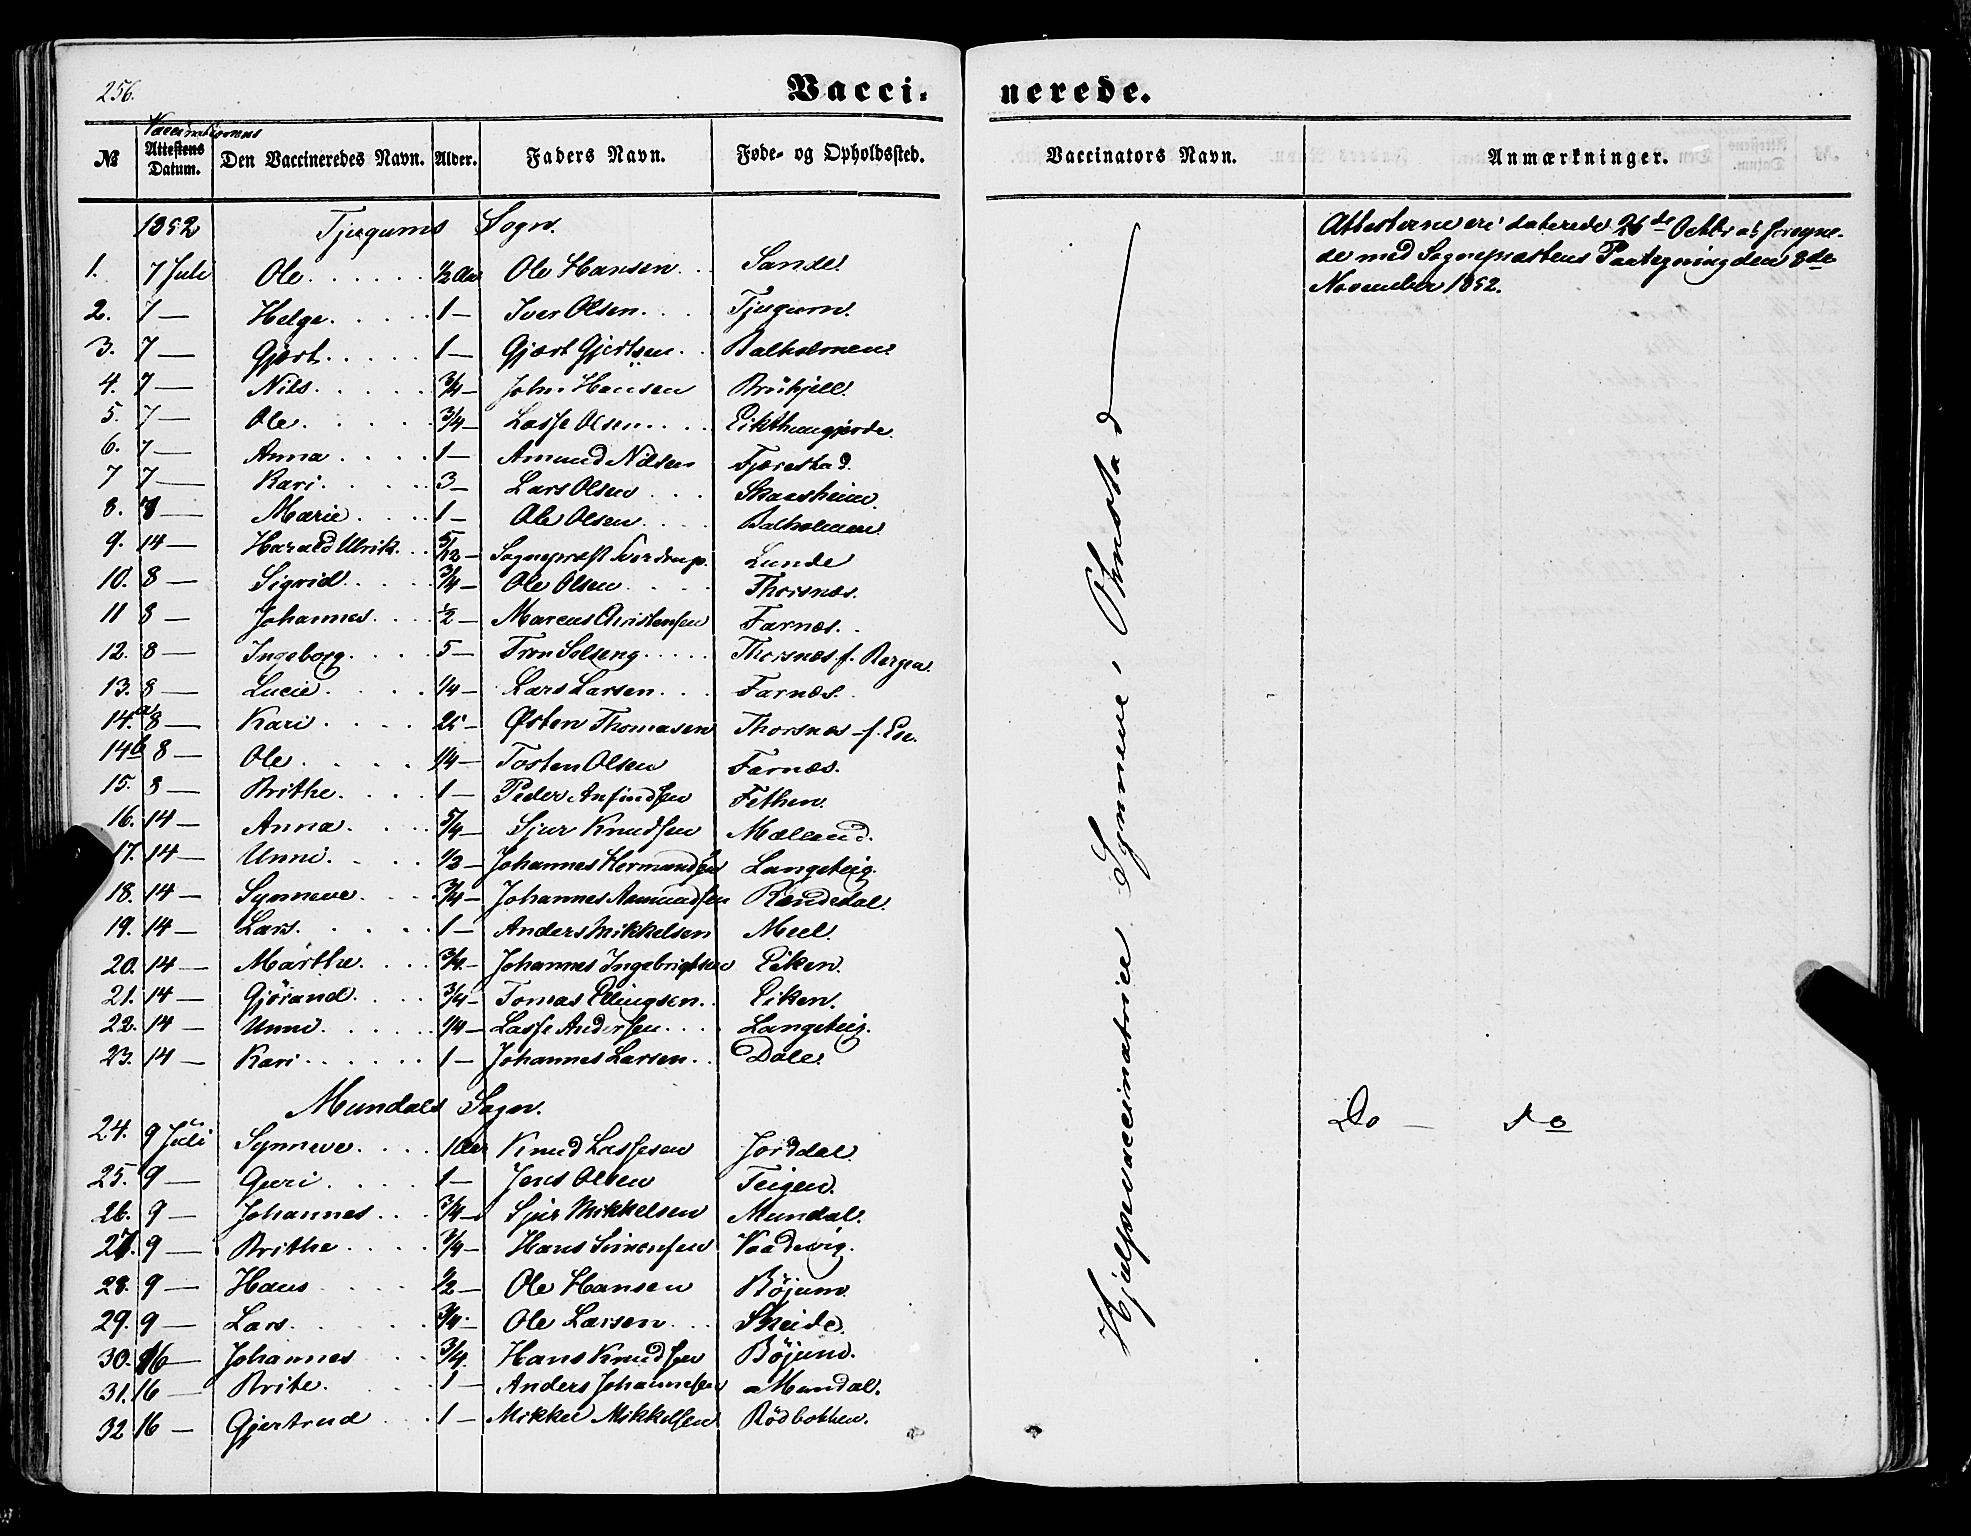 256.
Vacci- nerede.
Vaccinationens
No Attestens Datum. Den Vaccineredes Navn. Alder. Faders Navn. Føde- og Opholdssted. Vaccinators Navn. Anmærkninger.
1852 Tjugums Sogn.
1. 7 Juli Ole 1/2 Aar Ole Hansen Sande
2. 7 — Helge 1 — Iver Olsen Tjugum
3. 7 — Gjert 1 — Gjert Gjertsen Balholmen
4. 7 — Nils 3/4 — John Hansen
5. 7 — Ole 3/4 — Lasse Olsen
6. 7 — Anna 1 — Amund Nilsen Fjærestad
7 7 — Kari 3 — Lars Olsen Skaasheim
8. 8 — Marie 1 — Ole Olsen Balholmen
9. 14 — Harald Ulrik 5/12 — Sognepræst Sverdrup Lunde
10. 8 — Sigrid 3/4 — Ole Olsen Thorsnæs
11 8 — Johannes 1/2 — Marcus Christensen Farnæs.
12. 8 — Ingeborg 5 — Thorsnæs f. Bergen
13. 8 — Lucie 1/4 — Lars Larsen Farnæs
14.a 8 — Kari 25 — Østen Thomasen Thorsnæs f. Ese
14b 8 — Ole 1/4 — Tosten Olsen Farnæs.
15. 8 — Brithe 1 — Peder Anfindsen Fethen
16. 14 — Anna 5/4 — Sjur Knudsen Mælland.
17. 14 — Unni 1/2 — Johannes Hermandsen Langeteig
18. 14 — Synneve 3/4 — Johannes Aamundsen Rendedal
19. 14 — Lars 1 — Anders Mikkelsen Meel
20. 14 — Marthe 3/4 — Johannes Ingebrigtsen Eiken
21. 14 — Gjörand 3/4 — Tomas Ellingsen Eiken
22. 14 — Unni 1/4 — Lasse Andersen Langeteig
23. 14 — Kari 1 — Johannes Larsen Dale
Mundals Sogn.
24. 9 Juli Synneve 1 Aar Knud Lassesen Jorddal
25. 9 — Guri 1 — Jens Olsen Teigen
26. 9 — Johannes 3/4 — Sjur Mikkelsen Mundal
27. 9 — Brithe 3/4 — Hans Simonsen Vaadevig
28. 9 — Hans 1/2 — Ole Hansen Böjum
29. 9 — Lars 3/4 Ole Larsen Skeide
30. 16 — Johannes 3/4 Hans Knudsen Böjum
31. 16 — Brite 1 — Anders Johannesen Mundal.
32 16 — Gjertrud 1 — Mikkel Mikkelsen Rödbakken
Hjælpevaccinatrice Synneve Ohnstad
Attesterne ere daterede 26de Octbr og foreyne-
de med Sognepræstens Paategning den 8de
November 1852.
Do — do